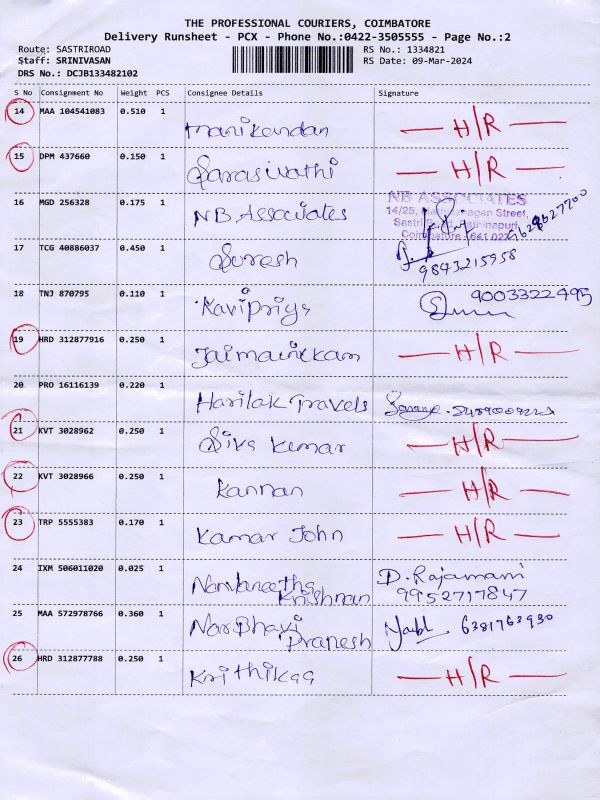 THE PROFESSIONAL COURIERS, COIMBATORE
Delivery Runsheet - PCX - Phone No.:0422-3505555 - Page No.:2
Route: SASTRIROAD RS No.: 1334821
Staff: SRINIVASAN RS Date: 09-Mar-2024
DRS No.: DCJB133482102
S No Consignment No Weight PCS Consignee Details Signature
14 MAA 104541083 0.510 1 Manikandan — H/R —
15 DPM 437660 0.150 1 Saraswathi — H/R —
16 MGD 256328 0.175 1 NB Associates NB ASSOCIATES
14/25, Street,
Sastri Road, Rathinapuri,
Coimbatore - 641 027
17 TCG 40886037 0.450 1 Suresh 9843215958
18 TNJ 870795 0.110 1 Kavipriya 9003322495
19 HRD 312877916 0.250 1 Jaimanickam — H/R —
20 PRO 16116139 0.220 1 Harilak Travels
21 KVT 3028962 0.250 1 Siva Kumar — H/R —
22 KVT 3028966 0.250 1 Kannan — H/R —
23 TRP 5555383 0.170 1 Kamar John — H/R —
24 IXM 506011020 0.025 1 Navaneetha Krishnan D. Rajamani
9952717847
25 MAA 572978766 0.360 1 NarBhavi Pranesh 6381763930
26 HRD 312877788 0.250 1 Krithikaa — H/R —